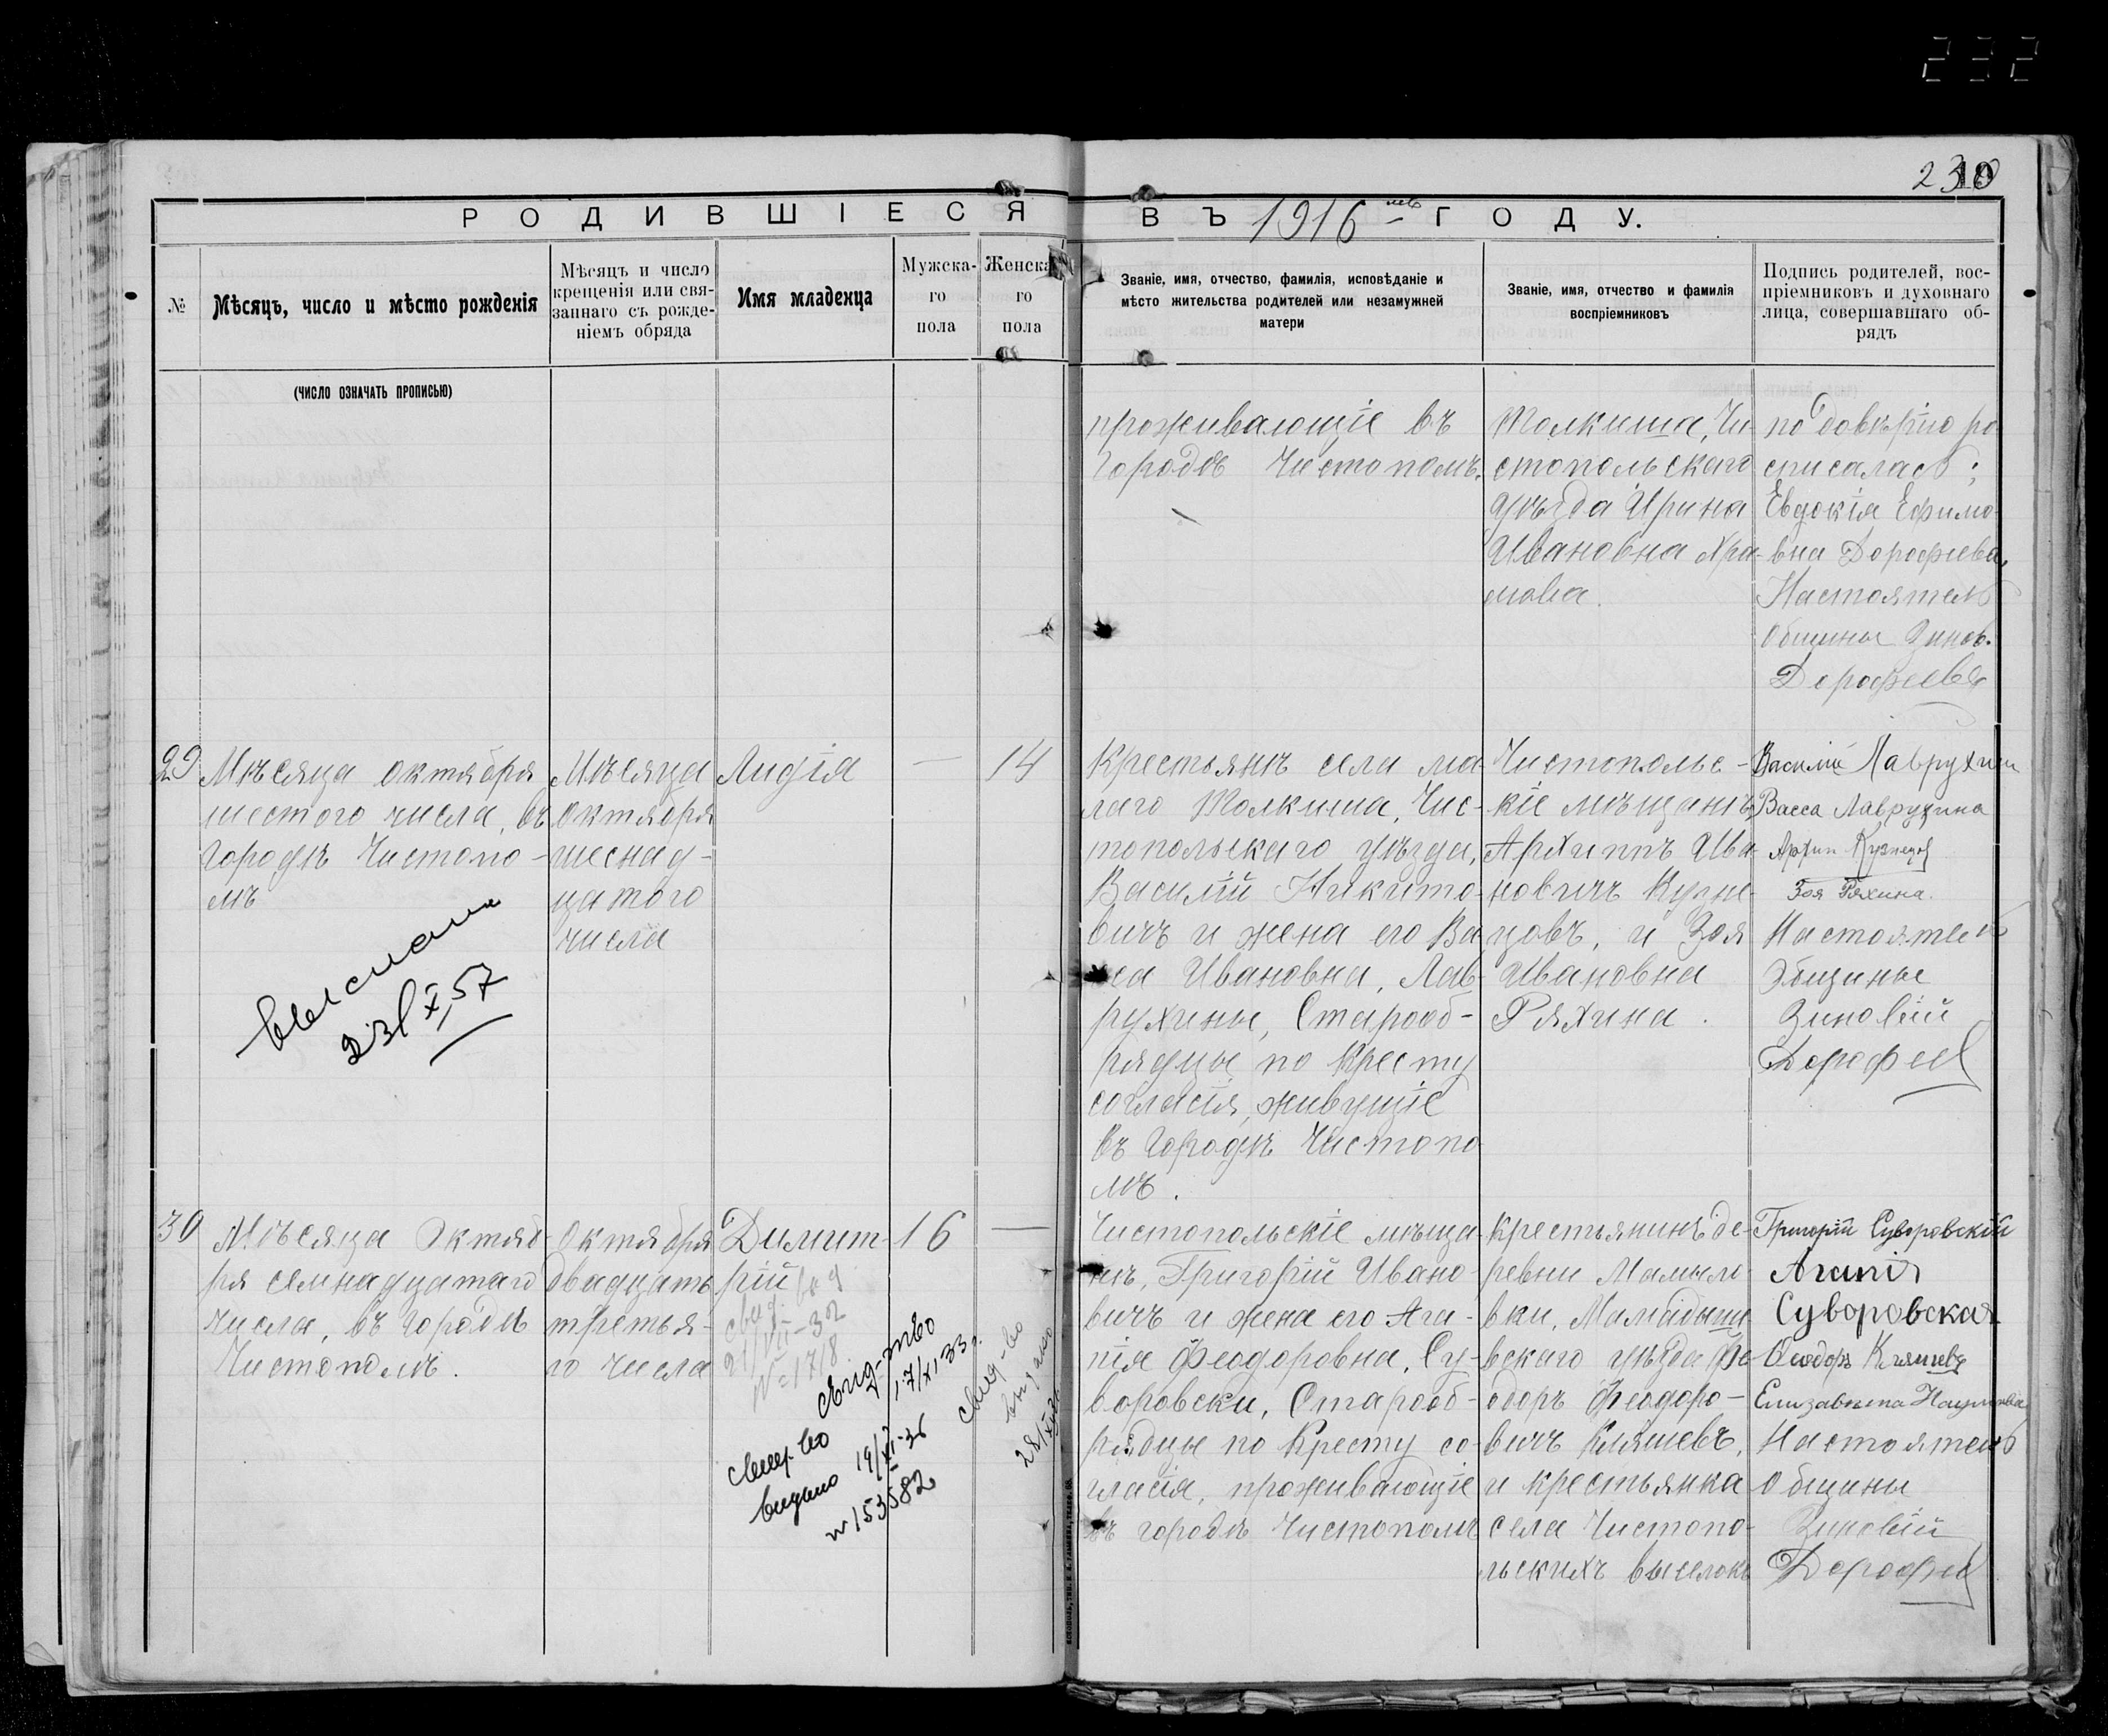 232
230
10
РОДИВШІЕСЯ ВЪ 1916 ГОДУ.
№
Мѣсяцъ, число и мѣсто рожденія
Мѣсяцъ и число
крещенія или свя-
заннаго съ рожде-
ніемъ обряда
Имя младенца
Мужска-
го
пола
Женска-
го
пола
Званіе, имя, отчество, фамилія, исповѣданіе и
мѣсто жительства родителей или незамужней
матери
Званіе, имя, отчество и фамилія
воспріемниковъ
Подпись родителей, вос-
пріемниковъ и духовнаго
лица, совершавшаго об-
рядъ
(ЧИСЛО ОЗНАЧАТЬ ПРОПИСЬЮ)
проживающіе въ
городѣ Чистополѣ.
Толкиша, Чи-
стопольскаго
уѣзда Ирина
Ивановна Хра-
мова.
по довѣрію ро
списалась;
Евдокія Ефимо
вна Дорофиева
Настоятель
общины Зинов.
Дорофеевъ
29
Мѣсяца октября
шестого числа, въ
городѣ Чистопо-
лѣ
Мѣсяца
октября
шеснад-
цатого
числа
Лидія
—
14
Крестьянѣ села ма
лаго Толкиша, Чис-
топольскаго уѣзда,
Василій Никито-
вичъ и жена его Ва
са Ивановна, Лав-
рухины, Старооб-
рядцы по Кресту
согласія, живущіе
въ городѣ Чистопо
лѣ.
Чистопольс-
кіе мѣщанѣ
Архиппъ Ива-
новичъ Кузне-
цовъ, и Зоя
Ивановна
Ряхина.
Василіе Лаврухин
Васса Лаврухина
Архип Кузнецов
Зоя Ряхина.
Настоятель
общины
Зиновій
Дорофеев
выслано
23/X 57
30
Мѣсяца Октяб-
ря семнадцатаго
числа, въ городѣ
Чистополѣ.
Октября
двадцать
третья-
го числа
Димит-
рій
16
—
21/VII-32
№ 1718
свид-тво
17/XI 33 г.
свид-во
выдано 19/XI-36
№ 153582
свид-во
выдано
Чистопольскіе мѣща
нѣ, Григорій Ивано-
вичъ и жена его Ага-
пія Феодоровна, Су-
воровски, Старооб-
рядцы по Кресту со-
гласія, проживающіе
въ городѣ Чистополѣ
крестьянинъ де-
ревни Мамыло-
вки, Мамадыш-
вскаго уѣзда Фе
одоръ Феодоро-
вичъ Кляшевъ,
и крестьянка
села Чистопо-
льскихъ выселокъ
Григорій Суворовскій
Агапія
Суворовская
Ѳеодоръ Кляшевъ
Елизавѣта Наумова
Настоятель
общины
Зиновій
Дорофеев